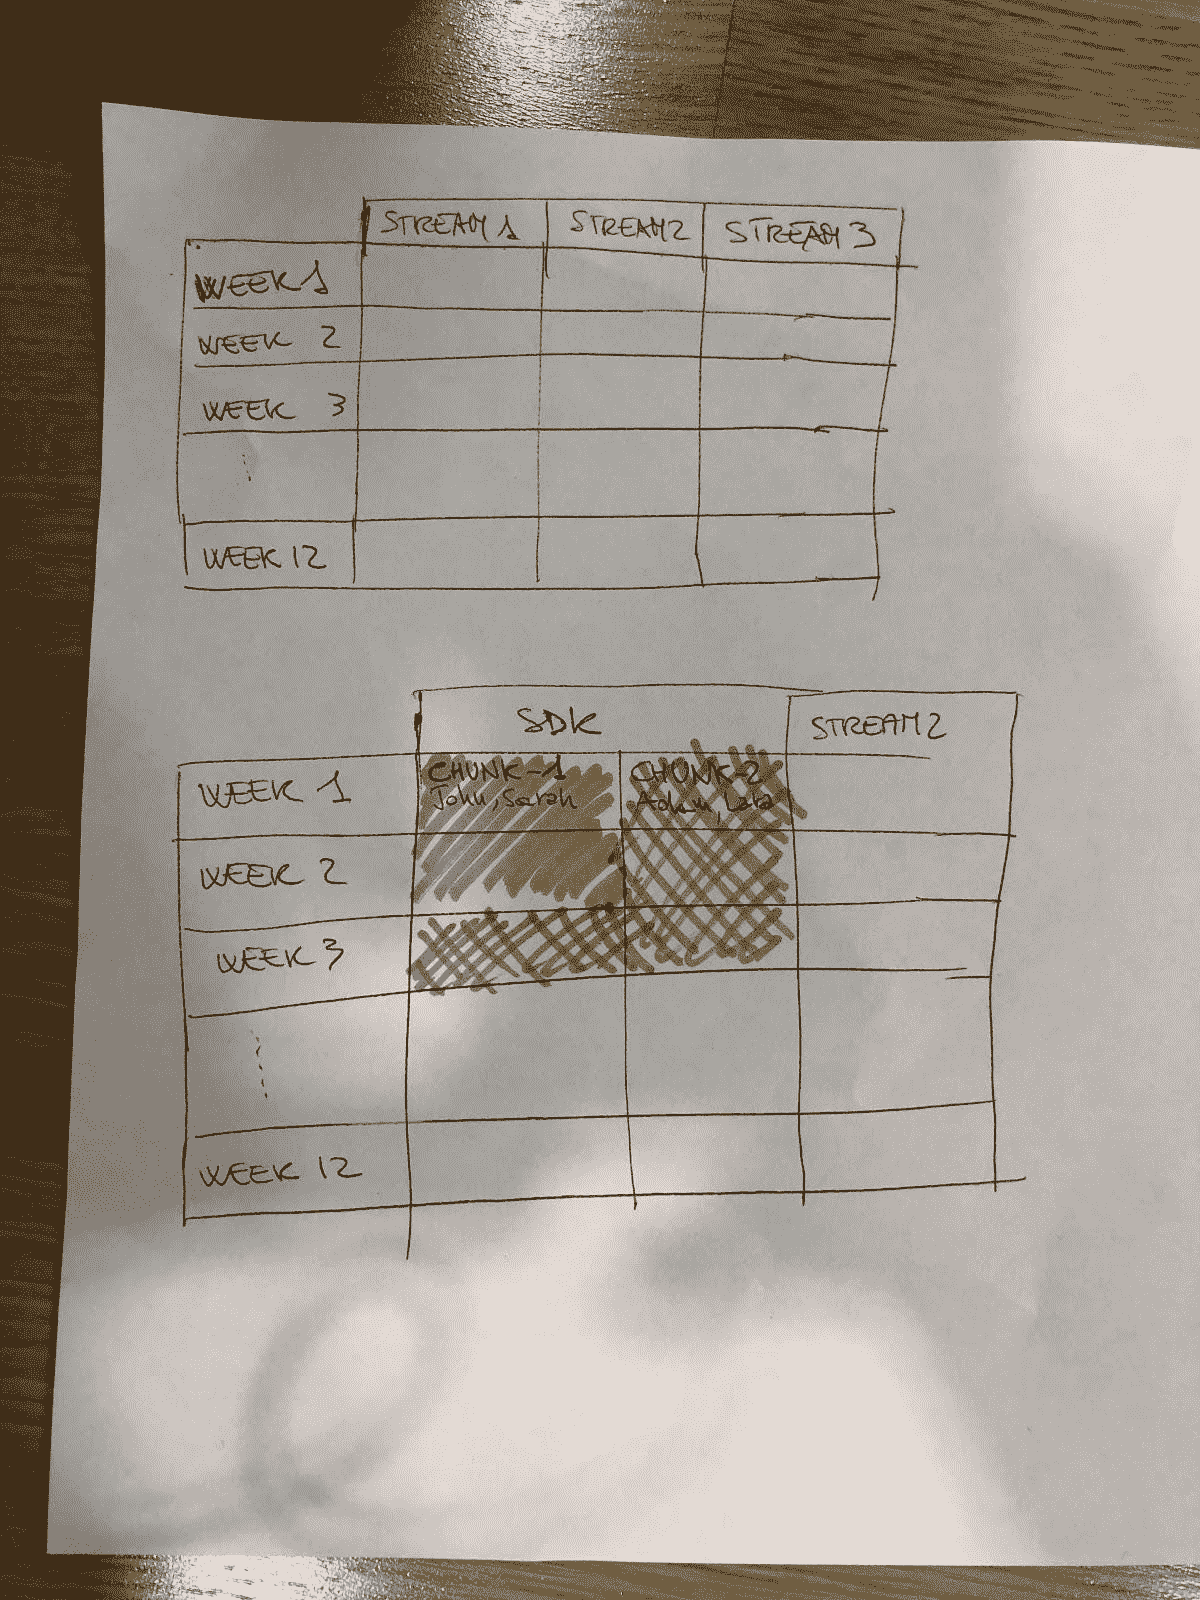 STREAM 1 STREAM 2 STREAM 3
WEEK 1
WEEK 2
WEEK 3
WEEK 12
SDK STREAM 2
WEEK 1 CHUNK-1 CHUNK-2
John, Sarah Adam, Lara
WEEK 2
WEEK 3
WEEK 12